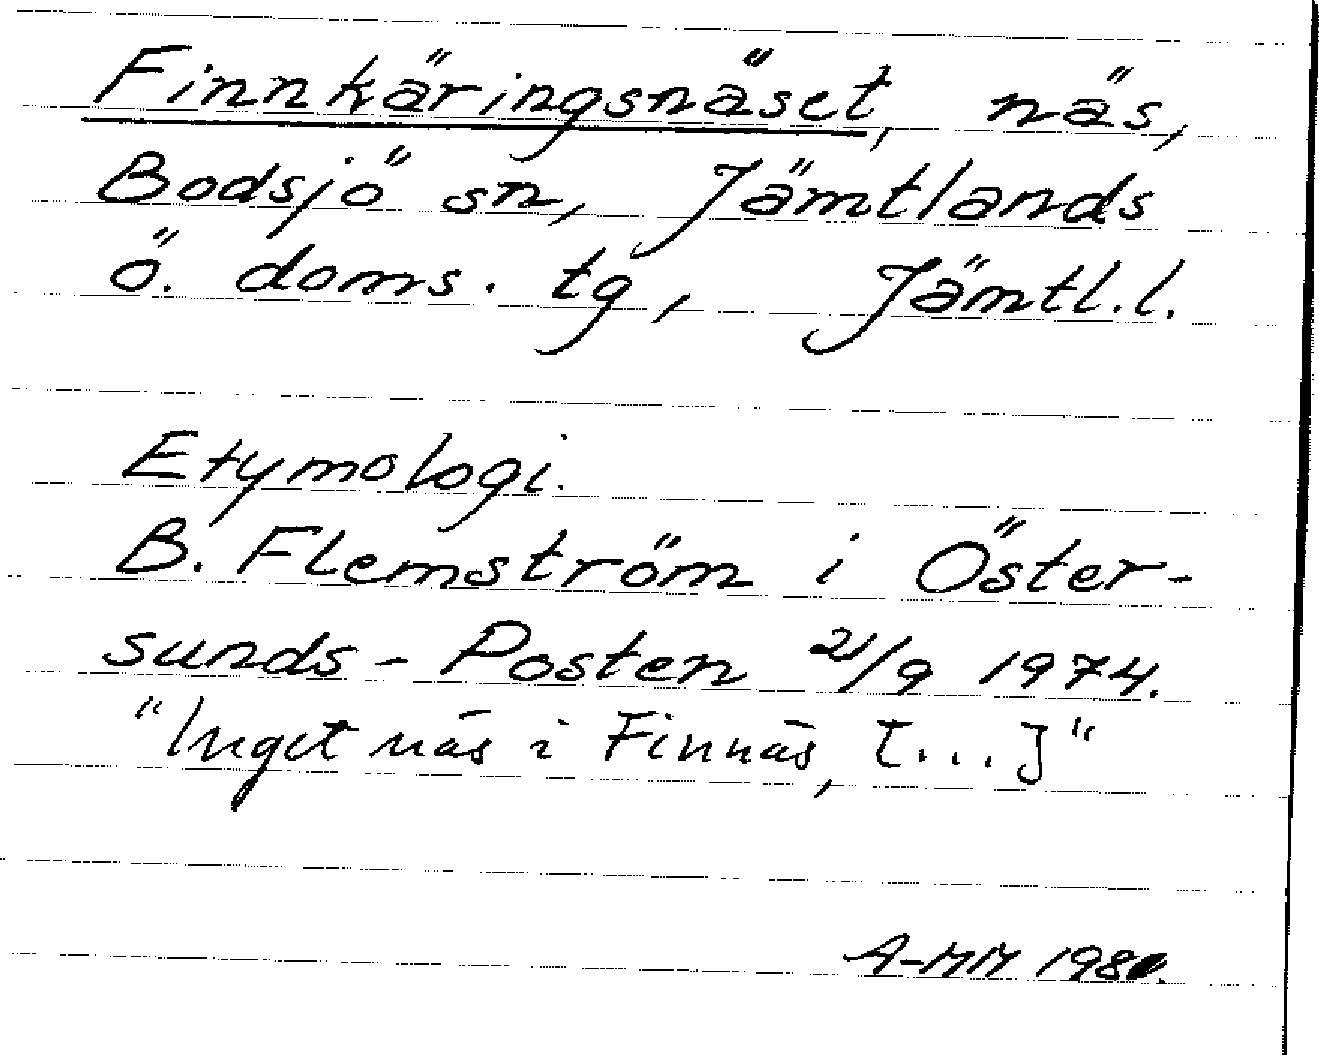 Finnkäringsnäset, näs,
Bodsjö sn, Jämtlands
ö. doms. tg, Jämtl.l.
Etymologi.
B. Flemström i Öster-
sunds-Posten 21/9 1974.
"Inget näs i Finnäs, [...]"
A-MM